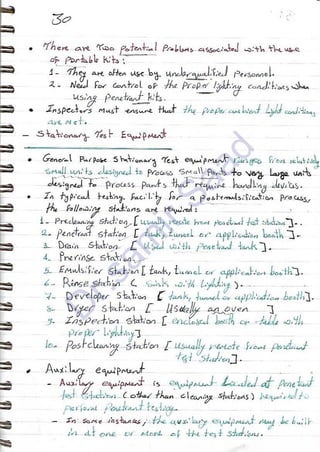 30
• There are Two potential Problems associated with the use
of Portable Kits:
1- They are often use by underqualified Personnel.
2- Need for control of the proper lighting conditions when
using penetrant kits.
• Inspectors must ensure that the proper ambient light conditions
are met.
- Stationary Test Equipment
• General Purpose Stationary Test equipment ranges from relatively
small units designed to process small Parts to very large units
designed to process parts that require handling devices.
• In typical testing facility for a postemulsification process,
the following stations are required:
1- Precleaning station, [usually remote from penetrant test station].
2- Penetrant station [tank, tunnel or application booth].
3- Drain Station [used with penetrant tank].
4- Prerinse station.
5- Emulsifier station [tank, tunnel or application booth].
6- Rinse station [sink with lighting].
7- Developer station [tank, tunnel or application booth].
8- Dryer station [Usually an oven]
9- Inspection station [enclosed booth or table with
proper lighting].
10- Postcleaning Station [usually remote from penetrant
test station].
• Auxiliary equipment
- Auxiliary equipment is equipment located at penetrant
test station (other than cleaning stations) required to
perform penetrant testing.
- In some instances, the auxiliary equipment may be built
in at one or more of the test stations.